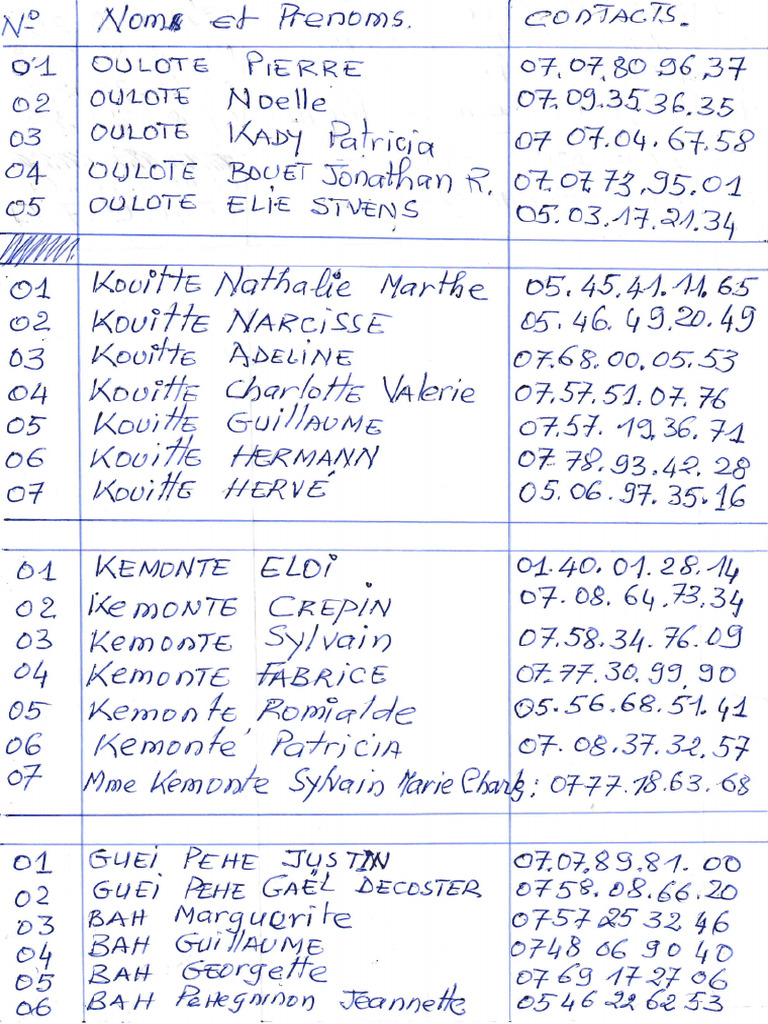 N° Noms et Prenoms. CONTACTS.
01 OULOTE PIERRE 07.07.80 96.37
02 OULOTE Noelle 07.09.35.36.35
03 OULOTE KADY Patricia 07 07.04.67.58
04 OULOTE BOUET Jonathan R. 07.07.73.95.01
05 OULOTE ELIE STVENS 05.03.17.21.34
01 KOUITTE Nathalie Marthe 05.45.41.11.65
02 KOUITTE NARCISSE 05.46.49.20.49
03 KOUITTE ADELINE 07.68.00.05.53
04 KOUITTE Charlotte Valerie 07.57.51.07.76
05 KOUITTE GUILLAUME 07.57.19.36.71
06 KOUITTE HERMANN 07 78.93.42.28
07 KOUITTE HERVÉ 05.06.97.35.16
01 KEMONTE ELOI 01.40.01.28.14
02 KEMONTE CREPIN 07.08.64.73.34
03 KEMONTE Sylvain 07.58.34.76.09
04 KEMONTE FABRICE 07.77.30.99.90
05 KEMONTE Romialde 05.56.68.51.41
06 Kemonte Patricia 07.08.37.32.57
07 Mme Kemonte Sylvain Marie : 0777.18.63.68
01 GUEI PEHE JUSTIN 07.07.89.81.00
02 GUEI PEHE GAËL DECOSTER 0758.08.66.20
03 BAH Marguerite 0757 25 32 46
04 BAH GUILLAUME 0748 06 90 40
05 BAH GEORGETTE 07 69 17 27 06
06 BAH Jeannette 0546 22 62 53